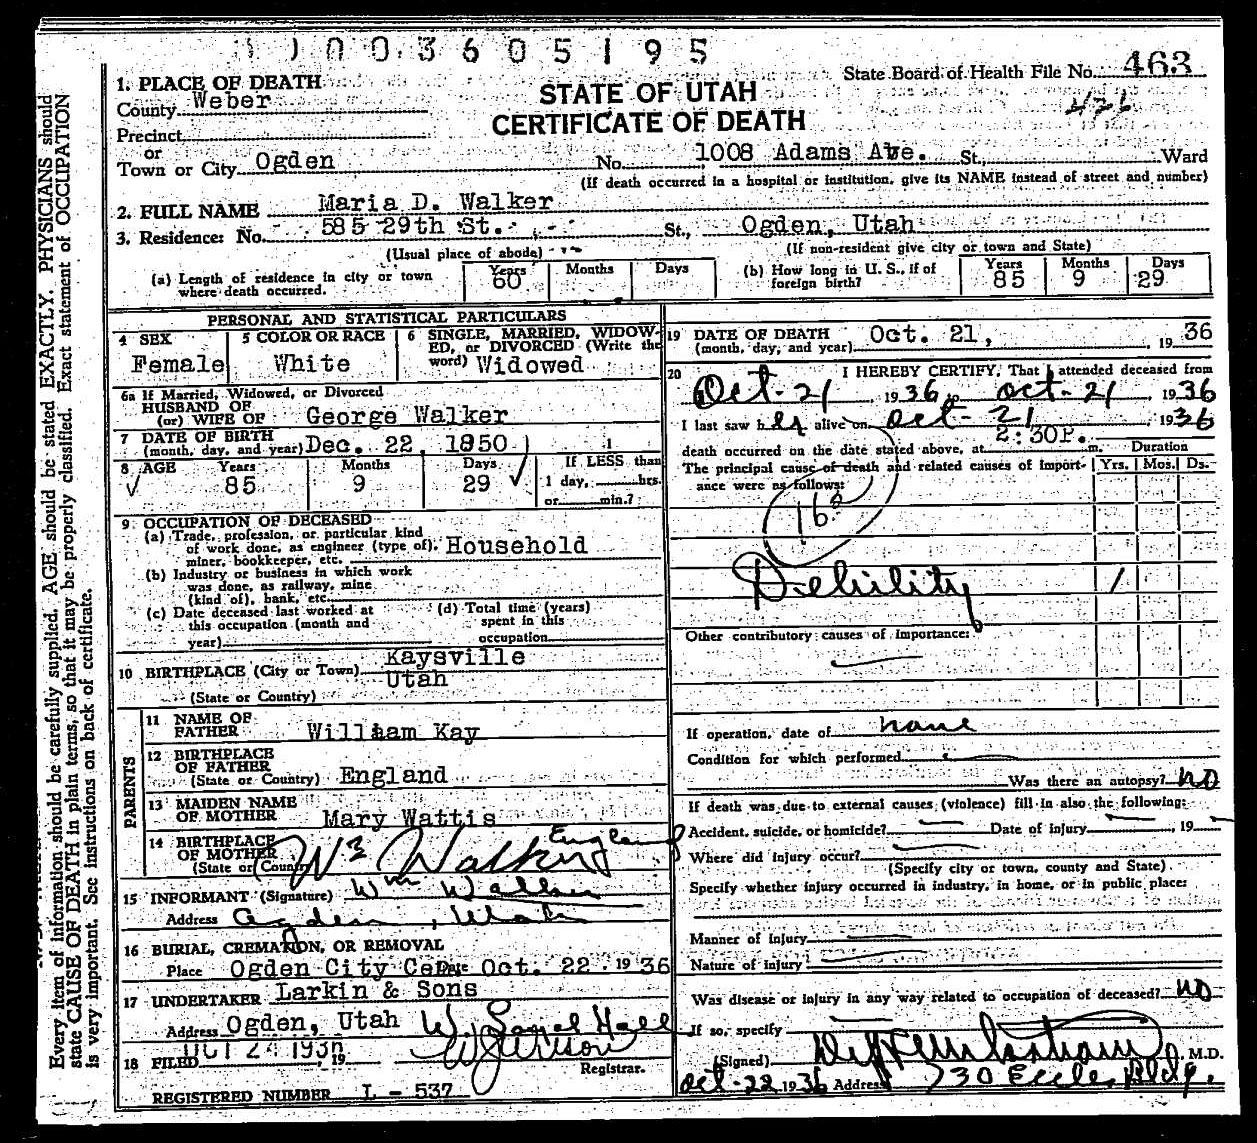 1003605195
State Board of Health File No. 463
426
STATE OF UTAH
CERTIFICATE OF DEATH
1. PLACE OF DEATH
County Weber
Precinct
or
Town or City Ogden No. 1008 Adams Ave. St., Ward
(If death occurred in a hospital or institution, give its NAME instead of street and number)
2. FULL NAME Maria D. Walker
3. Residence: No. 585 29th St. St., Ogden, Utah
(Usual place of abode) (If non-resident give city or town and State)
(a) Length of residence in city or town where death occurred. Years 60 Months Days
(b) How long in U. S., if of foreign birth? Years 85 Months 9 Days 29
PERSONAL AND STATISTICAL PARTICULARS
4 SEX Female
5 COLOR OR RACE White
6 SINGLE, MARRIED, WIDOW-
ED, or DIVORCED (Write the
word) Widowed
6a If Married, Widowed, or Divorced
HUSBAND OF
(or) WIFE OF George Walker
7 DATE OF BIRTH
(month, day, and year) Dec. 22, 1850
8 AGE Years 85 Months 9 Days 29
If LESS than
1 day, hrs.
or min.?
9 OCCUPATION OF DECEASED
(a) Trade, profession, or particular kind
of work done, as engineer (type of), Household
miner, bookkeeper, etc.
(b) Industry or business in which work
was done, as railway, mine
(kind of), bank, etc.
(c) Date deceased last worked at
this occupation (month and
year)
(d) Total time (years)
spent in this
occupation
10 BIRTHPLACE (City or Town) Kaysville
Utah
(State or Country)
PARENTS
11 NAME OF
FATHER William Kay
12 BIRTHPLACE
OF FATHER
(State or Country) England
13 MAIDEN NAME
OF MOTHER Mary Wattis
14 BIRTHPLACE
OF MOTHER
(State or Country) England
Wm Walker
15 INFORMANT (Signature) Wm Walker
Address Ogden, Utah
16 BURIAL, CREMATION, OR REMOVAL
Place Ogden City Cem Date Oct. 22 1936
17 UNDERTAKER Larkin & Sons
Address Ogden, Utah
18 FILED OCT 24 1936, 19
Registrar.
REGISTERED NUMBER L - 537
19 DATE OF DEATH
(month, day, and year) Oct. 21, , 1936
20 I HEREBY CERTIFY, That I attended deceased from
Oct-21, 1936 to Oct-21, 1936
I last saw her alive on Oct-21 1936
death occurred on the date stated above, at 2:30P. m.
The principal cause of death and related causes of import-
ance were as follows:
Duration
Yrs. Mos. Ds.
162
Debility 1
Other contributory causes of importance:
If operation, date of none
Condition for which performed
Was there an autopsy? no
If death was due to external causes (violence) fill in also the following:
Accident, suicide, or homicide? Date of injury , 19
Where did injury occur?
(Specify city or town, county and State)
Specify whether injury occurred in industry, in home, or in public place:
Manner of Injury
Nature of Injury
Was disease or injury in any way related to occupation of deceased? no
If so, specify
(Signed) M.D.
Oct-22 1936 Address 730 Eccles Bldg.
Every item of information should be carefully supplied. AGE should be stated EXACTLY. PHYSICIANS should
state CAUSE OF DEATH in plain terms, so that it may be properly classified. Exact statement of OCCUPATION
is very important. See instructions on back of certificate.